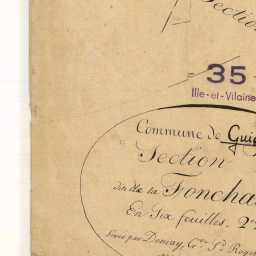 Section
35
Ille-et-Vilaine
Commune de Guig
Section
dite de la Foncha
En Six feuilles. 2
Levée par Demay, G